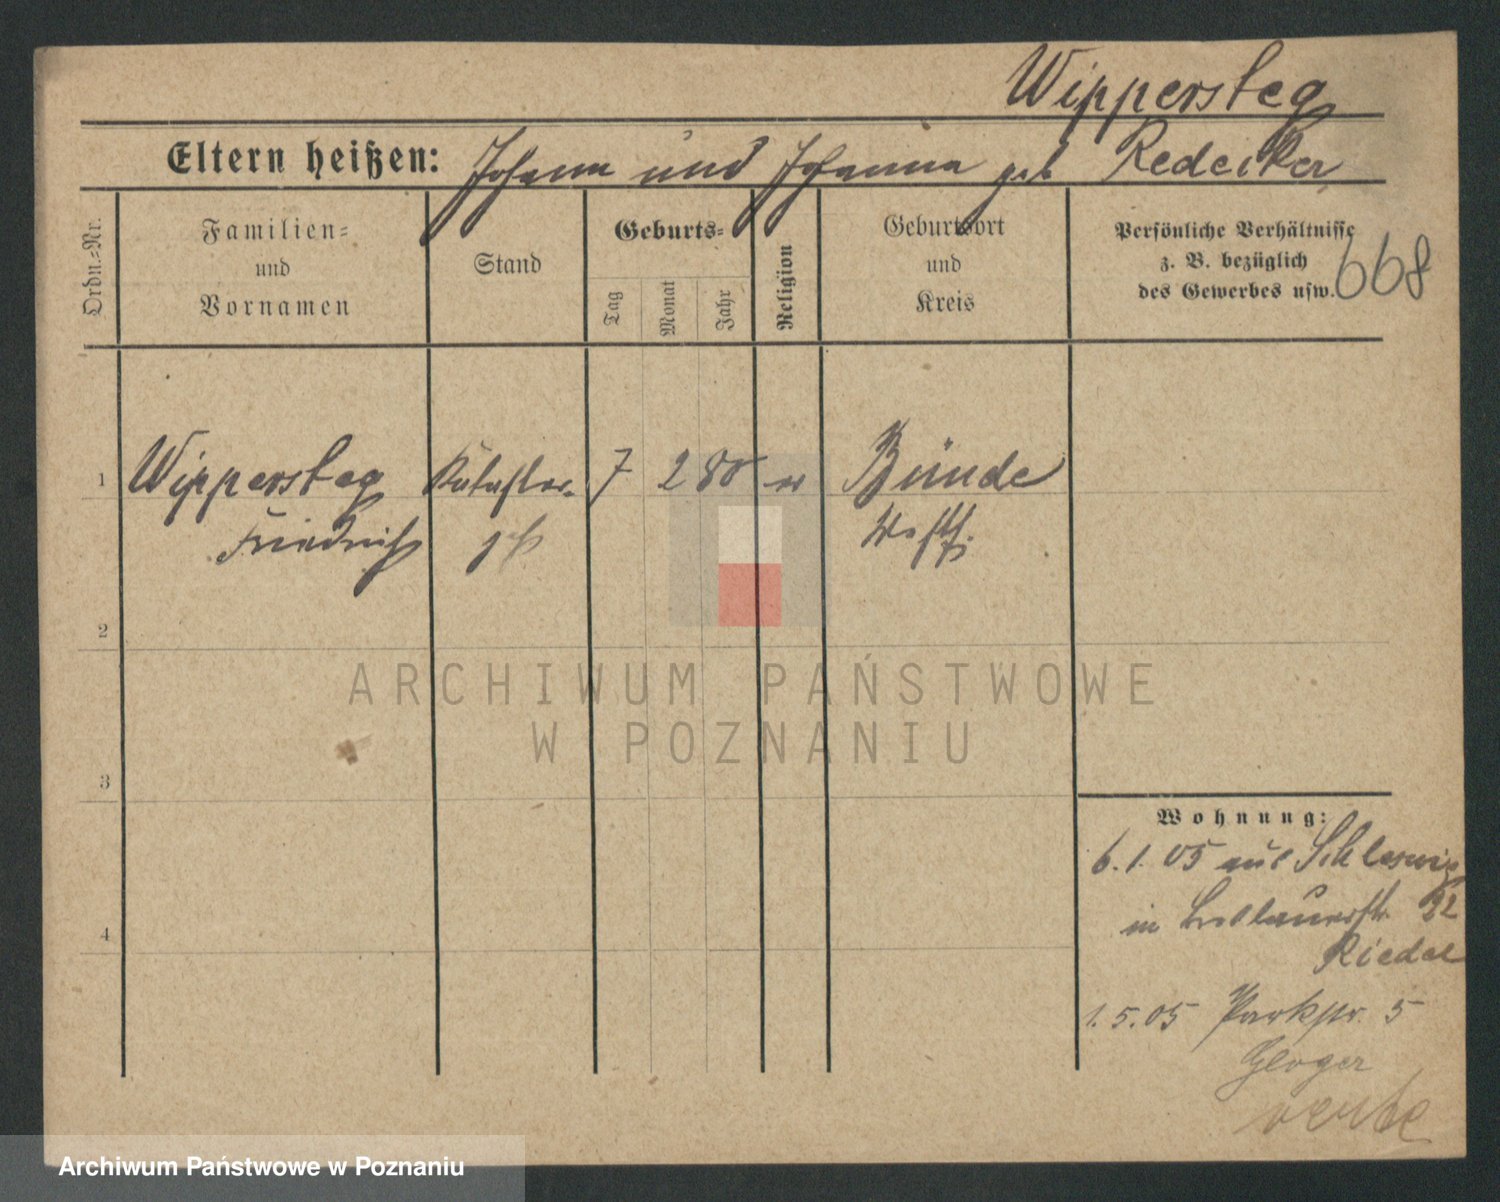 Wippersteg
Eltern heißen: Johann und Johanna geb Redecker
Ordn.-Nr.
Familien-
und
Vornamen
Stand
Geburts-
Tag
Monat
Jahr
Religion
Geburtsort
und
Kreis
Persönliche Verhältnisse
z. B. bezüglich
des Gewerbes usw.
668
1
Wippersteg
Friedrich
Kataster-
geh
7
2
80
ev
Bünde
Westf.
2
3
4
Wohnung:
6.1.05 aus Schleswig
in 32
Riedel
1.5.05 Parkstr. 5
Gloger
ARCHIWUM PAŃSTWOWE
W POZNANIU
Archiwum Państwowe w Poznaniu